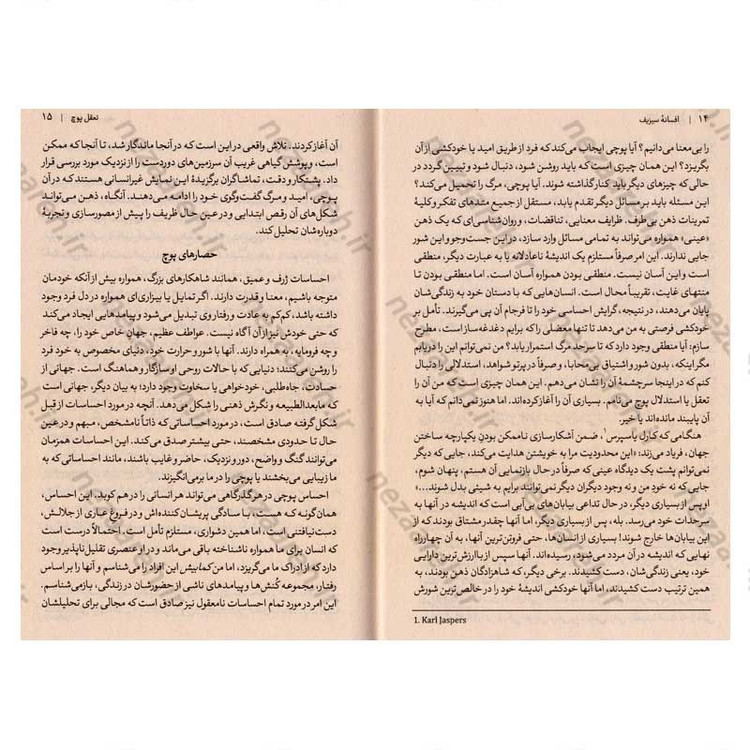 ۱۴ | افسانهٔ سیزیف
را بی‌معنا می‌دانیم؟ آیا پوچی ایجاب می‌کند که فرد از طریق امید یا خودکشی از آن
بگریزد؟ این همان چیزی است که باید روشن شود، دنبال شود و تبیین گردد در
حالی که چیزهای دیگر باید کنار گذاشته شوند. آیا پوچی، مرگ را تحمیل می‌کند؟
این مسئله باید بر مسائل دیگر تقدم یابد، مستقل از جمیع متدهای تفکر و کلیهٔ
تمرینات ذهن بی‌طرف. ظرایف معنایی، تناقضات، و روان‌شناسی‌ای که یک ذهن
«عینی» همواره می‌تواند به تمامی مسائل وارد سازد، در این جست‌وجو و این شور
جایی ندارند. این امر صرفاً مستلزم یک اندیشهٔ ناعادلانه یا به عبارت دیگر، منطقی
است و این آسان نیست. منطقی بودن همواره آسان است. اما منطقی بودن تا
منتهای غایت، تقریباً محال است. انسان‌هایی که با دستان خود به زندگی‌شان
پایان می‌دهند، در نتیجه، گرایش احساسی خود را تا فرجام آن پی می‌گیرند. تأمل بر
خودکشی فرصتی به من می‌دهد تا تنها معضلی را که برایم دغدغه‌ساز است، مطرح
سازم: آیا منطقی وجود دارد که تا سرحد مرگ استمرار یابد؟ من نمی‌توانم این را دریابم
مگر اینکه، بدون شور و اشتیاق بی‌محابا، و صرفاً در پرتو شواهد، استدلالی را دنبال
کنم که در اینجا سرچشمهٔ آن را نشان می‌دهم. این همان چیزی است که من آن را
تعقل یا استدلال پوچ می‌نامم. بسیاری آن را آغاز کرده‌اند. اما هنوز نمی‌دانم که آیا به
آن پایبند مانده‌اند یا خیر.
هنگامی که کارل یاسپرس۱، ضمن آشکارسازی ناممکن بودنِ یکپارچه ساختن
جهان، فریاد می‌زند: «این محدودیت مرا به خویشتن هدایت می‌کند، جایی که دیگر
نمی‌توانم پشت یک دیدگاه عینی که صرفاً در حال بازنمایی آن هستم، پنهان شوم،
جایی که نه خودِ من و نه وجود دیگران دیگر نمی‌توانند برایم به شیئی بدل شوند...»
او پس از بسیاری دیگر، در حال تداعی بیابان‌های بی‌آبی است که اندیشه در آنها به
سرحدات خود می‌رسد. بله، پس از بسیاری دیگر، اما آنها چقدر مشتاق بودند که از
این بیابان‌ها خارج شوند! بسیاری از انسان‌ها، حتی فروتن‌ترین آنها، به آن چهارراه
نهایی که اندیشه در آن مردد می‌شود، رسیده‌اند. آنها سپس از با ارزش‌ترین دارایی
خود، یعنی زندگی‌شان، دست کشیدند. برخی دیگر، که شاهزادگان ذهن بودند، به
همین ترتیب دست کشیدند، اما آنها خودکشی اندیشهٔ خود را در خالص‌ترین شورش
1. Karl Jaspers
تعقل پوچ | ۱۵
آن آغاز کردند. تلاش واقعی در این است که در آنجا ماندگار شد، تا آنجا که ممکن
است، و پوشش گیاهی غریب آن سرزمین‌های دوردست را از نزدیک مورد بررسی قرار
داد. پشتکار و دقت، تماشاگران برگزیدهٔ این نمایش غیرانسانی هستند که در آن
پوچی، امید و مرگ گفت‌وگوی خود را ادامه می‌دهند. آنگاه، ذهن می‌تواند
شکل‌های آن رقص ابتدایی و در عین حال ظریف را پیش از مصورسازی و تجربهٔ
دوباره‌شان تحلیل کند.
حصارهای پوچ
احساسات ژرف و عمیق، همانند شاهکارهای بزرگ، همواره بیش از آنکه خودمان
متوجه باشیم، معنا و قدرت دارند. اگر تمایل یا بیزاری‌ای همواره در دل فرد وجود
داشته باشد، کم‌کم به عادت و رفتار وی تبدیل می‌شود و پیامدهایی ایجاد می‌کند
که حتی خودش نیز از آن آگاه نیست. عواطف عظیم، جهانِ خاص خود را، چه فاخر
و چه فرومایه، به همراه دارند. آنها با شور و حرارت خود، دنیای مخصوص به خود فرد
را روشن می‌کنند؛ دنیایی که با حالات روحی او سازگار و هماهنگ است. جهانی از
حسادت، جاه‌طلبی، خودخواهی یا سخاوت وجود دارد؛ به بیان دیگر، جهانی است
که مابعدالطبیعه و نگرش ذهنی را شکل می‌دهد. آنچه در مورد احساسات از قبل
شکل گرفته صادق است، در مورد احساساتی که ذاتاً نامشخص، مبهم و در عین
حال تا حدودی مشخصند، حتی بیشتر صدق می‌کند. این احساسات همزمان
می‌توانند گنگ و واضح، دور و نزدیک، حاضر و غایب باشند، مانند احساساتی که به
ما زیبایی می‌بخشند یا پوچی را در ما برمی‌انگیزند.
احساس پوچی در هر گذرگاهی می‌تواند هر انسانی را در هم کوبد. این احساس،
همان‌گونه که هست، با سادگی پریشان‌کننده‌اش و در فروغ عاری از جلالش،
دست‌نیافتنی است، اما همین دشواری، مستلزم تأمل است. احتمالاً درست است
که انسان برای ما همواره ناشناخته باقی می‌ماند و در او عنصری تقلیل‌ناپذیر وجود
دارد که از ادراک ما می‌گریزد. اما من کمابیش این افراد را می‌شناسم و آنها را بر اساس
رفتار، مجموعه کُنش‌ها و پیامدهای ناشی از حضورشان در زندگی، بازمی‌شناسم.
این امر در مورد تمام احساسات نامعقول نیز صادق است که مجالی برای تحلیلشان